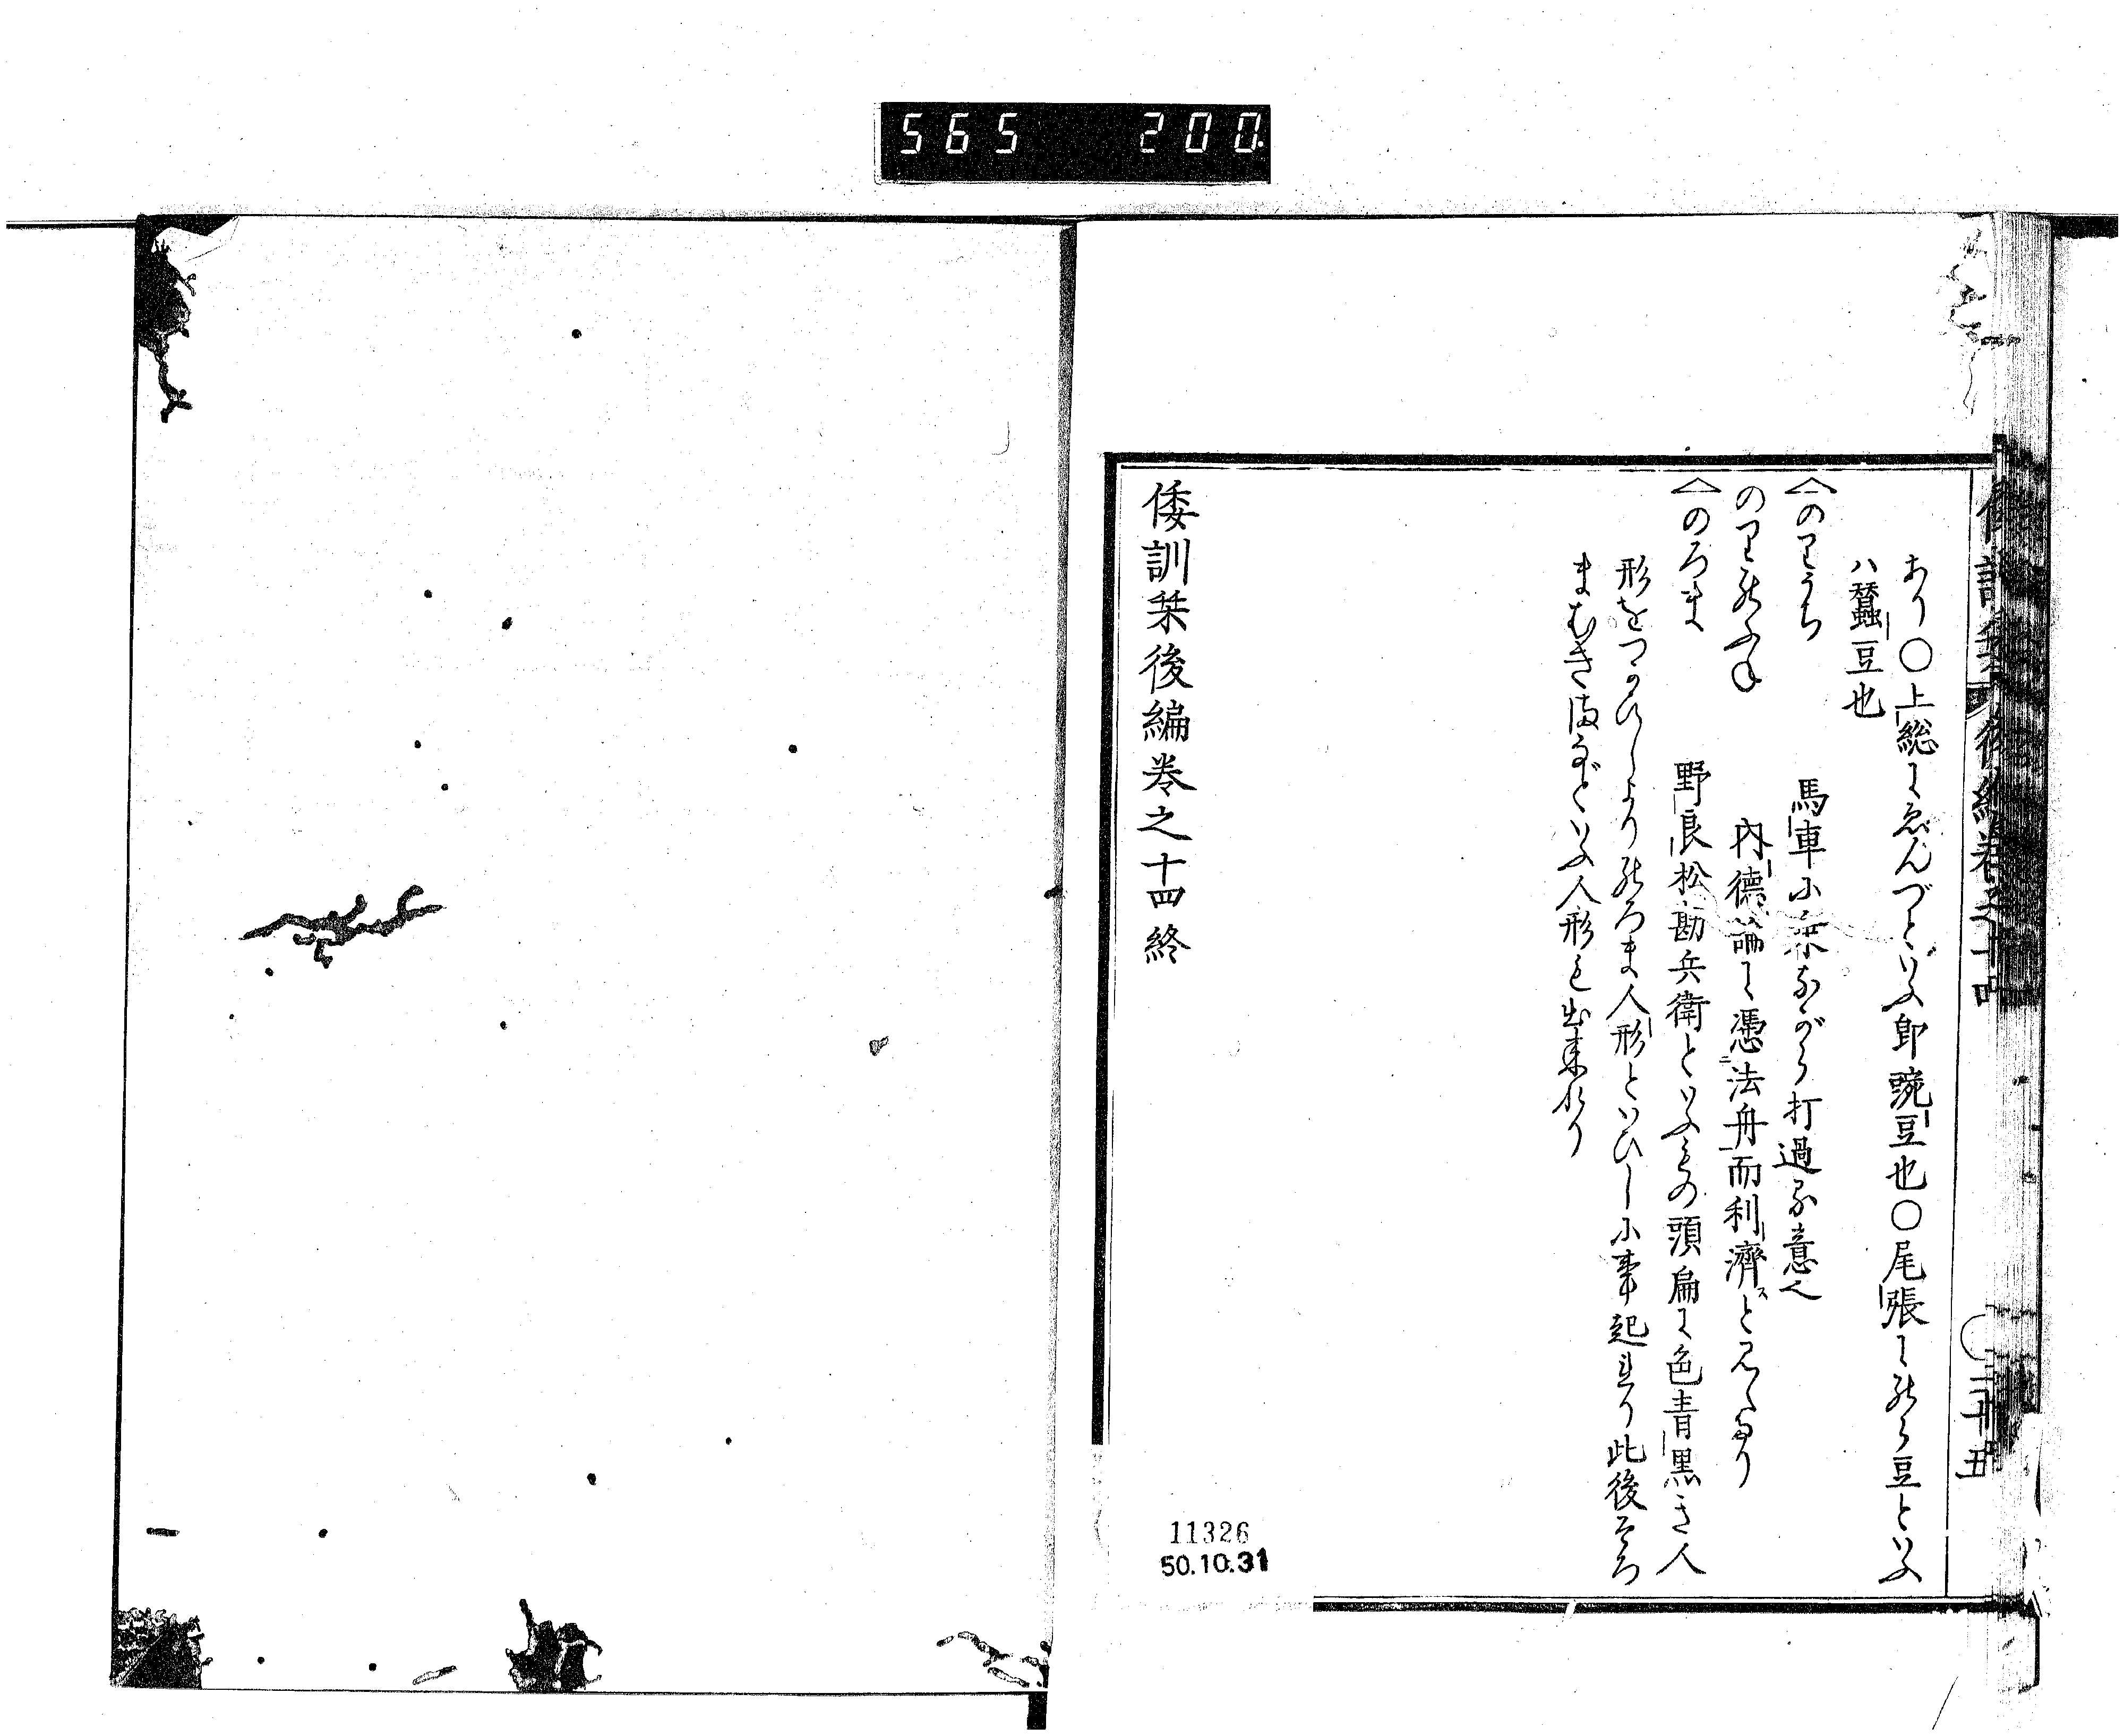 565 200
倭訓栞後編巻之十四
〇二十五
あり〇上総にゑんづといふ即豌豆也〇尾張にのら豆といふ
ハ蠶豆也
〈のりうち 馬車に乗ながら打過る意也
のりのふね 内德論に憑法舟而利濟スと見えたり
〈のろま 野良松勘兵衛といふもの頭扁に色青黒き人
形をつかひしよりのろま人形といひしに事起れり此後そろ
まむきまなどいふ人形も出来れり
倭訓栞後編巻之十四終
11326
50.10.31